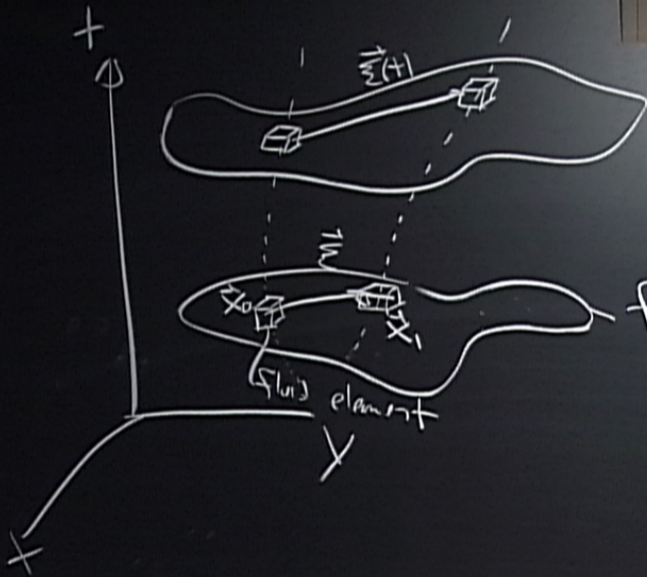 t
ξ(t)
ξ
x₀
x₁
fluid element
y
x